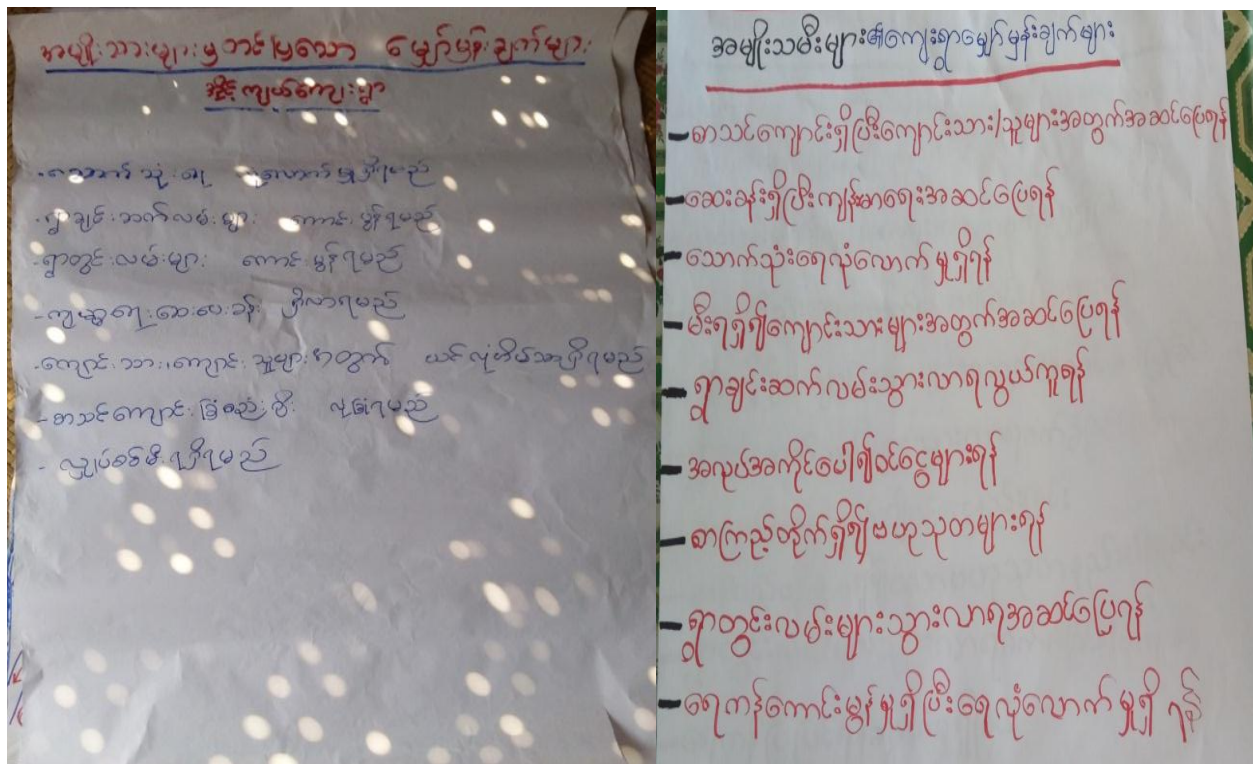 အမျိုးသားများမှတင်ပြသော မျှော်မှန်းချက်များ
ကျယ်ကျေးရွာ
-သောက်သုံးရေ လုံလောက်မှုရှိရမည်
-ရွာချင်းဆက်လမ်းများ ကောင်းမွန်ရမည်
-ရွာတွင်းလမ်းများ ကောင်းမွန်ရမည်
-ကျေးရွာဆေးပေးခန်း ရှိလာရမည်
-ကျောင်းသား၊ကျောင်းသူများအတွက် ယင်လုံအိမ်သာရှိရမည်
-စာသင်ကျောင်းခြံစည်းရိုး လုံခြုံရမည်
- လျှပ်စစ်မီးရရှိရမည်
အမျိုးသမီးများ၏ကျေးရွာမျှော်မှန်းချက်များ
-စာသင်ကျောင်းရှိပြီးကျောင်းသား/သူများအတွက်အဆင်ပြေရန်
-ဆေးခန်းရှိပြီးကျန်းမာရေးအဆင်ပြေရန်
-သောက်သုံးရေလုံလောက်မှုရှိရန်
-မီးရရှိ၍ကျောင်းသားများအတွက်အဆင်ပြေရန်
-ရွာချင်းဆက်လမ်းသွားလာရလွယ်ကူရန်
-အလုပ်အကိုင်ပေါ၍ဝင်ငွေများရန်
-စာကြည့်တိုက်ရှိ၍ဗဟုသုတများရန်
-ရွာတွင်းလမ်းများသွားလာရအဆင်ပြေရန်
-ရေကန်ကောင်းမွန်မှုရှိပြီးရေလုံလောက်မှုရှိရန်